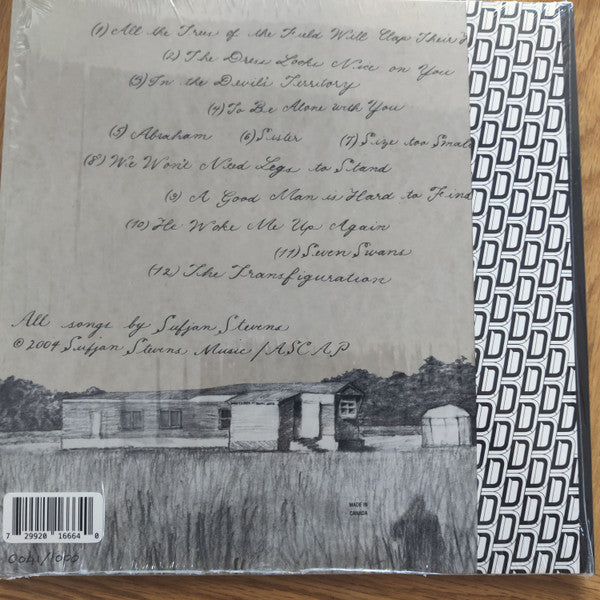 (1) All the Trees of the Field Will Clap Their H
(2) The Dress Looks Nice on You
(3) In the Devil's Territory
(4) To Be Alone with You
(5) Abraham (6) Sister (7) Size too Small
(8) We Won't Need Legs to Stand
(9) A Good Man is Hard to Find
(10) He Woke Me Up Again
(11) Seven Swans
(12) The Transfiguration
All songs by Sufjan Stevens
© 2004 Sufjan Stevens Music / ASCAP
MADE IN
CANADA
7 29920 16664 0
0041/1000